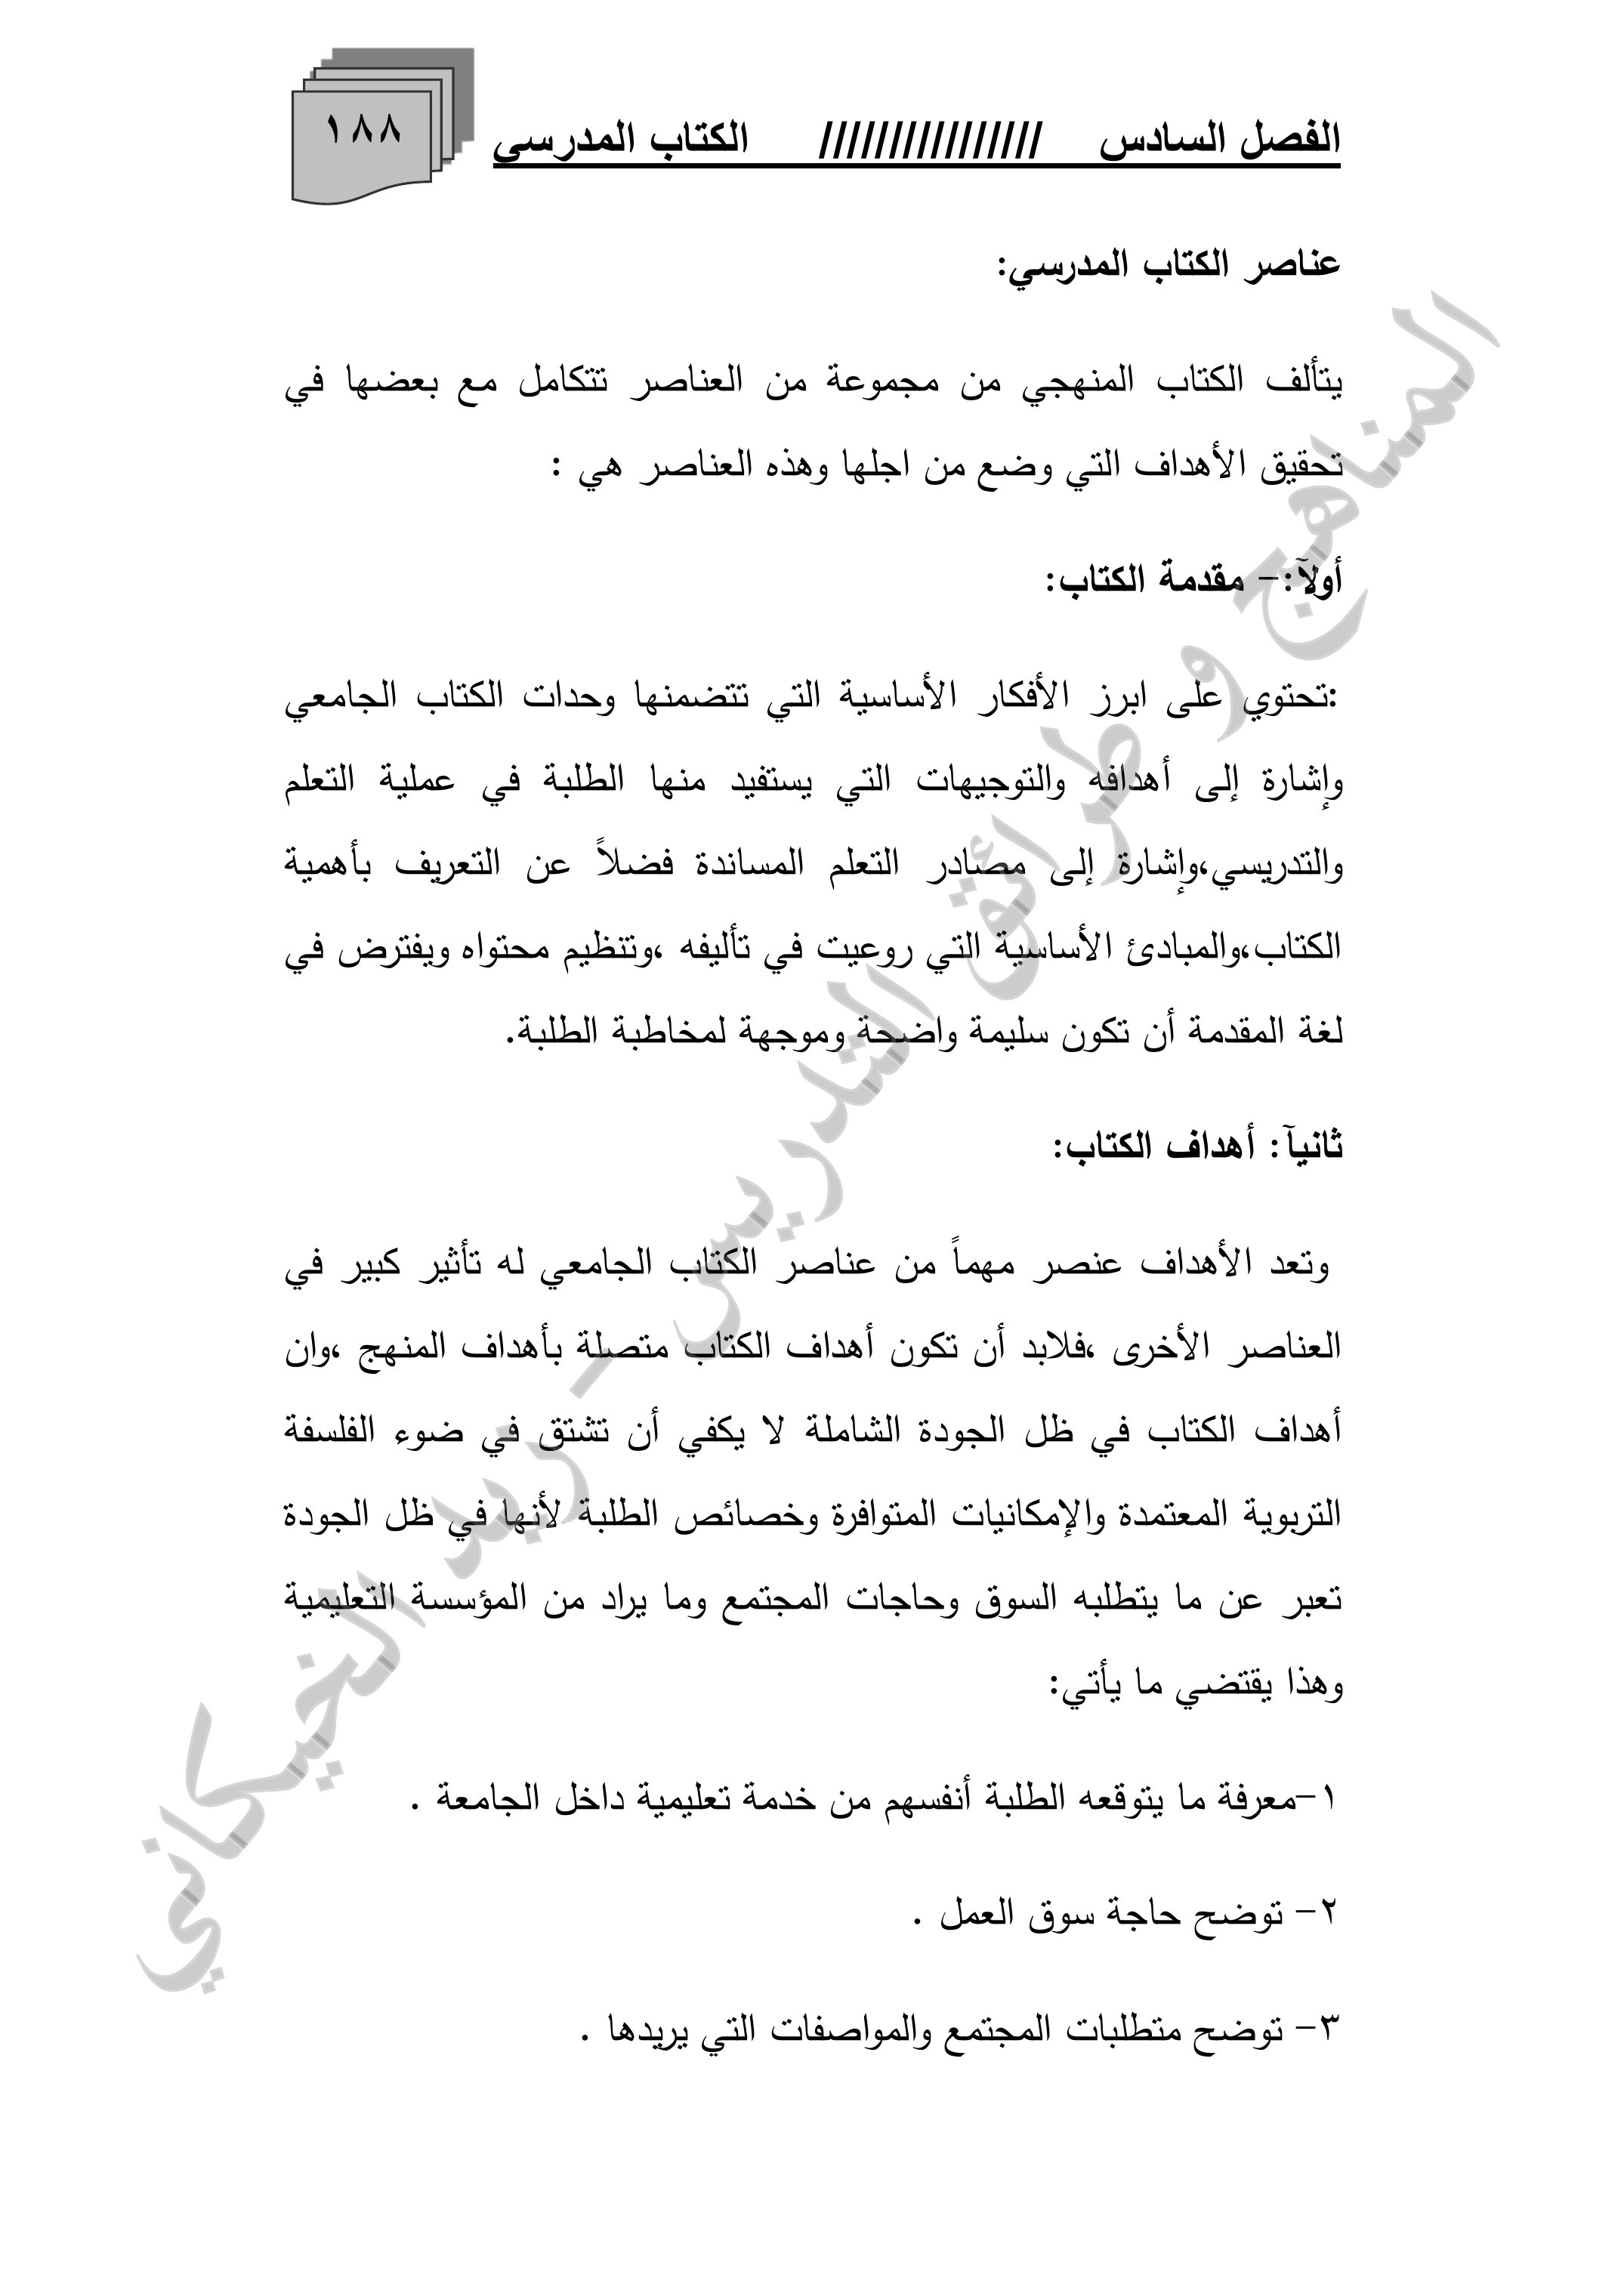 الفصل السادس //////////////// الكتاب المدرسي
١٨٨
عناصر الكتاب المدرسي:
يتألف الكتاب المنهجي من مجموعة من العناصر تتكامل مع بعضها في
تحقيق الأهداف التي وضع من اجلها وهذه العناصر هي :
أولآ:- مقدمة الكتاب:
:تحتوي على ابرز الأفكار الأساسية التي تتضمنها وحدات الكتاب الجامعي
وإشارة إلى أهدافه والتوجيهات التي يستفيد منها الطلبة في عملية التعلم
والتدريسي،وإشارة إلى مصادر التعلم المساندة فضلاً عن التعريف بأهمية
الكتاب،والمبادئ الأساسية التي روعيت في تأليفه ،وتنظيم محتواه ويفترض في
لغة المقدمة أن تكون سليمة واضحة وموجهة لمخاطبة الطلبة.
ثانيآ: أهداف الكتاب:
وتعد الأهداف عنصر مهماً من عناصر الكتاب الجامعي له تأثير كبير في
العناصر الأخرى ،فلابد أن تكون أهداف الكتاب متصلة بأهداف المنهج ،وان
أهداف الكتاب في ظل الجودة الشاملة لا يكفي أن تشتق في ضوء الفلسفة
التربوية المعتمدة والإمكانيات المتوافرة وخصائص الطلبة لأنها في ظل الجودة
تعبر عن ما يتطلبه السوق وحاجات المجتمع وما يراد من المؤسسة التعليمية
وهذا يقتضي ما يأتي:
١-معرفة ما يتوقعه الطلبة أنفسهم من خدمة تعليمية داخل الجامعة .
٢- توضح حاجة سوق العمل .
٣- توضح متطلبات المجتمع والمواصفات التي يريدها .
المناهج و طرائق التدريس – زيد الخيكاني